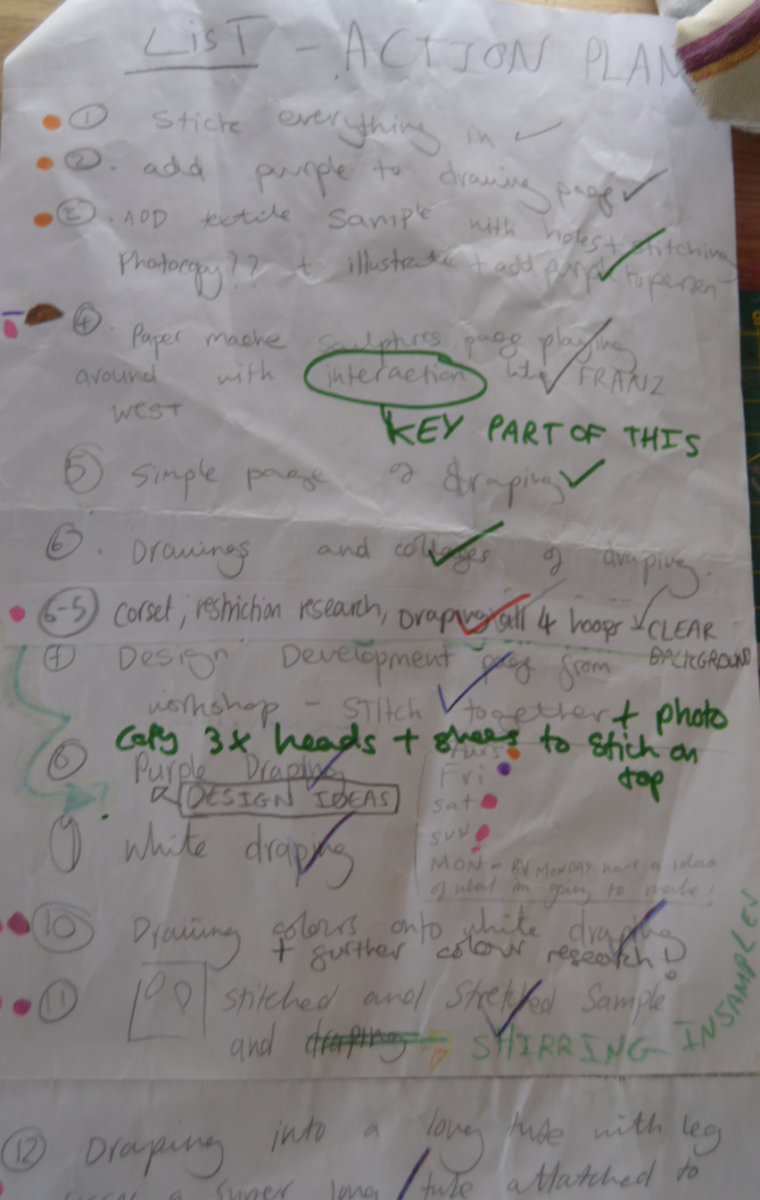 LIST - ACTION PLAN
① Stick everything in
②. add purple to drawing page
③. ADD textile sample with holes + stitching
Photocopy?? + illustrate + add purple to person
④. Paper mache sculptures page playing
around with interaction like FRANZ
WEST
KEY PART OF THIS
⑤ Simple page of draping
⑥. Drawings and collages of draping.
6-5 Corset, restriction research, Draping all 4 hoops CLEAR
BACKGROUND
⑦ Design Development page from
workshop - STITCH together + photo
copy 3x heads + shoes to stich on
top
⑧ Purple Draping
DESIGN IDEAS
?
Thurs
Fri
sat
SUN
MON - BY MONDAY have a idea
of what im going to make!
⑨ White draping
⑩ Drawing colours onto white draping
+ further colour research!
⑪ stitched and stretched sample
and draping SHIRRING IN SAMPLES
⑫ Draping into a long tube with leg
a super long tube attatched to